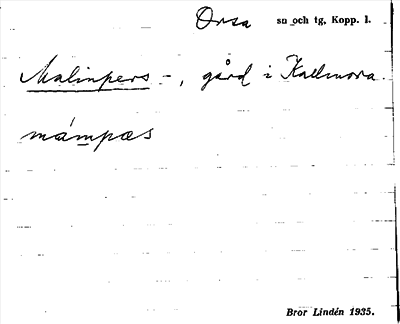 Orsa sn och tg, Kopp. l.
Malinpers -, gård i Kallmora.
mámpæs
Bror Lindén 1935.